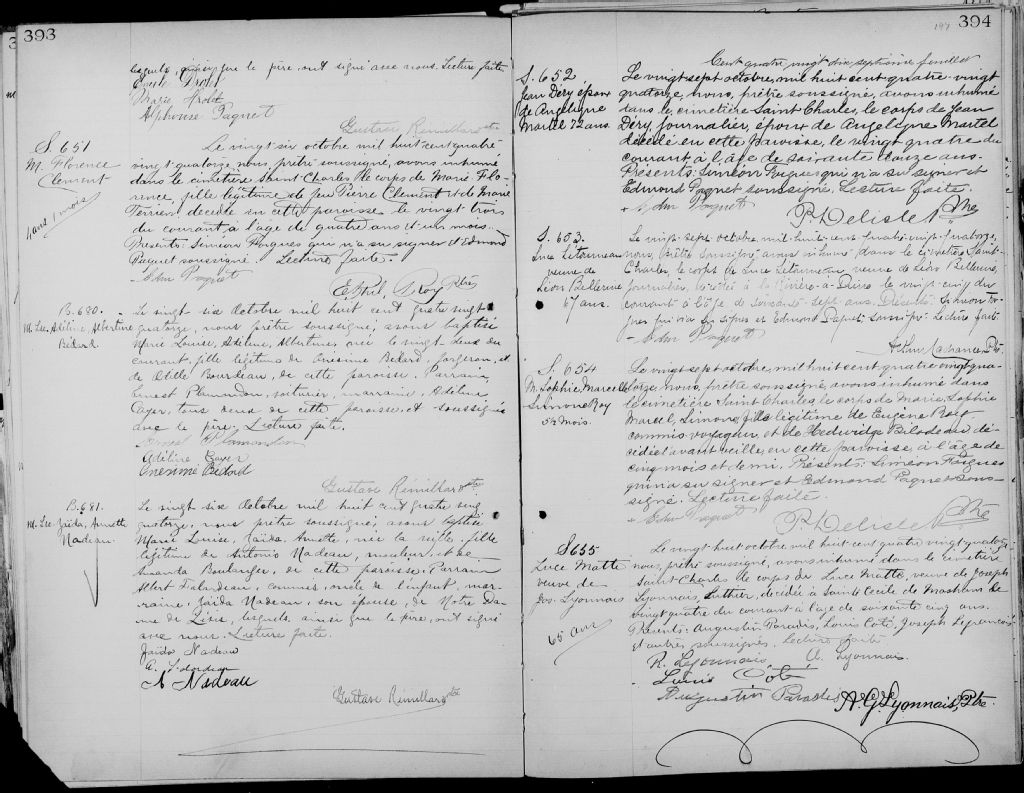 393
lesquels, ainsi que le père, ont signé avec nous. Lecture faite
Marie Drolet
Alphonse Paquet
Gustave Rémillard ptre
S. 651
M. Florence
Clement
4 ans 1 mois
Le vingt six octobre mil huit cent quatre
vingt-quatorze, nous, prêtre soussigné, avons inhumé
dans le cimetière Saint Charles le corps de Marie Flo-
rence, fille légitime de Jean Pierre Clement et de Marie
Terrien, decedé en cette paroisse le vingt trois
du courant à l'age de quatre ans et un mois.
Presents: Siméon Fugues qui n'a su signer et Edmond
Paquet soussigné. Lecture faite.
Edm Paquet
Roy Ptre
B. 680.
M. Lse. Adéline Albertine
Bédard.
Le vingt six Octobre mil huit cent quatre vingt
quatorze, nous prêtre soussigné, avons baptisé
Marie Louise, Adéline, Albertine, née le vingt deux du
courant, fille légitime de Onésime Bedard, forgeron, et
de Odile Bourdeau, de cette paroisse. Parrain,
Ernest Plamondon, voiturier, marraine, Adeline
Cayer, tous deux de cette paroisse et soussignés
avec le père. Lecture faite.
Ernest Plamondon
Adéline Cayer
Onésime Bédard
Gustave Rémillard ptre
B. 681.
M. Lse Zaïda, Annette
Nadeau.
Le vingt six Octobre mil huit cent quatre vingt
quatorze, nous prêtre soussigné, avons baptisé
Marie Louise, Zaïda, Annette, née la veille, fille
légitime de Antonio Nadeau, mouleur, et de
Amanda Boulanger, de cette paroisse. Parrain
Albert Falardeau, commis, oncle de l'enfant, mar-
raine, Zaïda Nadeau, son épouse, de Notre Da-
me de Lévis, lesquels, ainsi que le père, ont signé
avec nous. Lecture faite.
Zaïda Nadeau
A. Falardeau
A Nadeau
Gustave Rémillard ptre
197 394
Cent quatre vingt dix septième feuillet
S. 652
Jean Déry, époux
de Angelique
Martel 72 ans.
Le vingt sept octobre, mil huit cent quatre-vingt
quatorze, nous, prêtre soussigné, avons inhumé
dans le cimetière Saint Charles, le corps de Jean
Déry, journalier, époux de Angelique Martel
décédé en cette paroisse, le vingt quatre du
courant à l'âge de soixante douze ans.
Présents: Siméon Fugues qui n'a su signer et
Edmond Paquet soussigné. Lecture faite.
Edm Paquet
P. H. Delisle Ptre
S. 653.
Luce Létourneau
veuve de
Léon Bellerive
67 ans.
Le vingt-sept octobre, mil-huit-cent-quatre-vingt-quatorze,
nous, Prêtre soussigné, avons inhumé dans le cimetière Saint-
Charles, le corps de Luce Létourneau, veuve de Léon Bellerive,
journalier, décédée à la Rivière-à- le vingt-cinq du
courant à l'âge de soixante-sept-ans. Présents: Siméon Fu-
gues qui n'a su signer et Edmond Paquet soussigné. Lecture faite
Edm Paquet
Arthur Lachance, Ptr.
S. 654
M. Sophie Marcel
Simone Roy
5½ mois.
Le vingt sept octobre, mil huit cent quatre vingt qua-
torze, nous, prêtre soussigné, avons inhumé dans
le cimetière Saint Charles, le corps de Marie, Sophie
Marcel, Simone, fille légitime de Eugène Roy
commis-voyageur, et de Hedwidge Bilodeau dé-
cédée avant veille, en cette paroisse, à l'âge de
cinq mois et demi. Présents: Siméon Fugues
qui n'a su signer et Edmond Paquet sous-
signé. Lecture faite
Edm Paquet
P. H. Delisle Ptre
S 655
Luce Matte
veuve de
Jos. Lyonnais
65 ans
Le vingt huit octobre mil huit cent quatre vingt quatorze
nous, prêtre soussigné, avons inhumé dans le cimetière
Saint Charles le corps de Luce Matte, veuve de Joseph
Lyonnais, luthier, decédée à Saint Cecile de Masham le
vingt quatre du courant à l'age de soixante cinq ans.
Présents: Augustin Paradis, Louis Coté, Joseph Lefrancois
et autres soussignés. Lecture faite
R. Lyonnais A. Lyonnais
Louis Coté
Augustin Paradis
A. G. Lyonnais, Ptre.